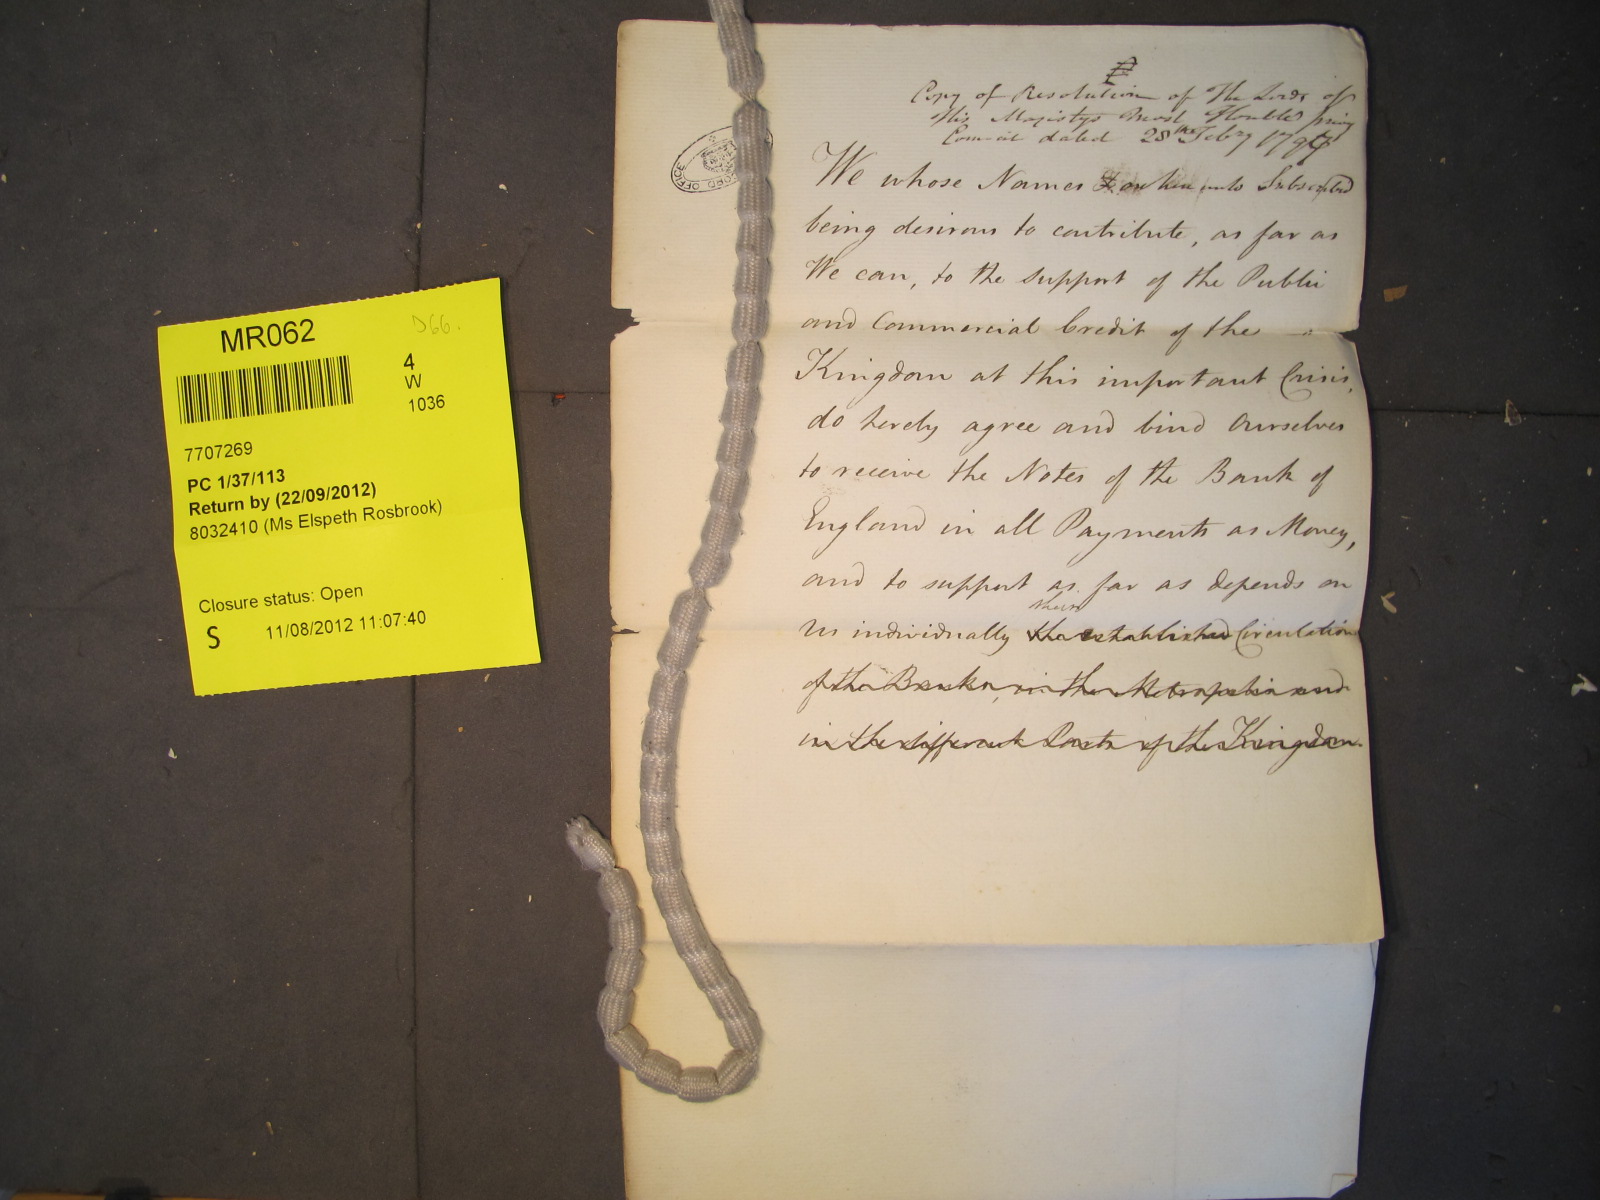 MR062
D66.
4
W
1036
7707269
PC 1/37/113
Return by (22/09/2012)
8032410 (Ms Elspeth Rosbrook)
Closure status: Open
S
11/08/2012 11:07:40
OFFICE
Copy of Resolution of The Lords of
His Majestys Most Honble privy
Council dated 28th Febry 1797
We whose Names are hereunto Subscribed
being desirous to contribute, as far as
We can, to the support of the Public
and Commercial Credit of the
Kingdom at this important Crisis,
do hereby agree and bind Ourselves
to receive the Notes of the Bank of
England in all Payments as Money,
and to support as far as depends on
their
us individually the established Circulation
of the Banks, in the Metropolis and
in the different Parts of the Kingdom.